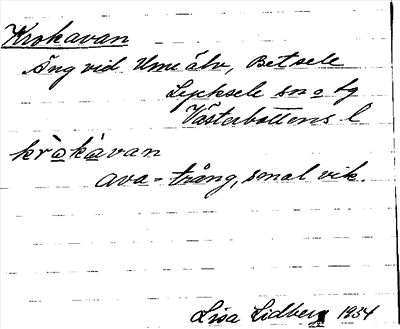 Krokavan
Äng vid Ume älv, Betsele
Lycksele sn o lg
Västerbottens l
kròkàvan
ava = trång, smal vik.
Lisa Lidberg 1934